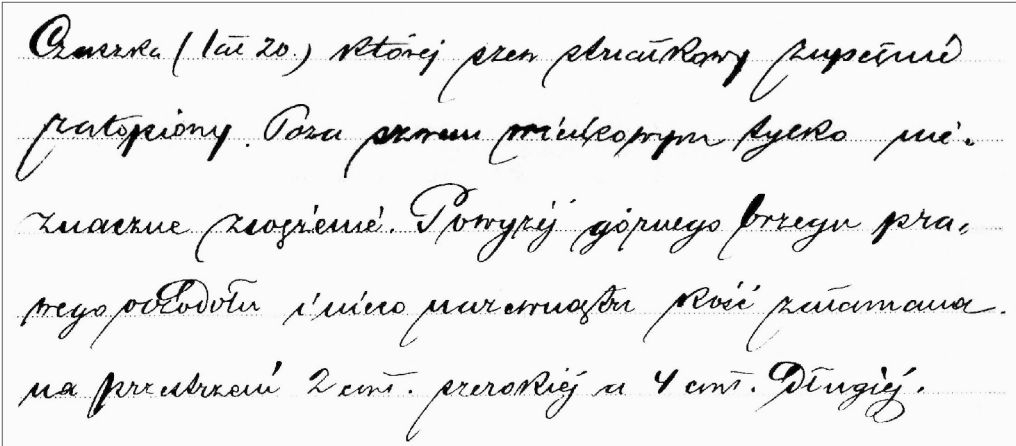 Czaszka (lat 20.) której szew strzałkowy zupełnie
zatopiony. Poza szwem wieńkowym tylko nie-
znaczne zagięcie. Powyżéj górnego brzegu pra-
wego oczodołu i nieco nazewnątrz kość złamana
na przestrzeni 2 cmt. szerokiéj a 4 cmt. długiéj.